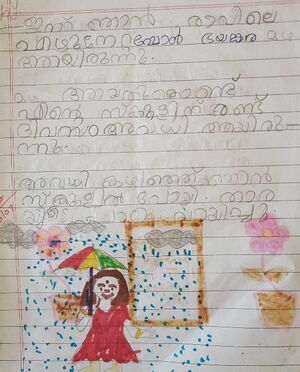 ഇന്ന് ഞാൻ രാവിലെ
എഴുന്നേറ്റപ്പോൾ ഭയങ്കര മഴ
ആയിരുന്നു.
മഴ ആയതുകൊണ്ട്
എന്റെ സ്കൂളിന് രണ്ട്
ദിവസം അവധി ആയിരു-
ന്നു
അവധി കഴിഞ്ഞ് ഞാൻ
സ്കൂളിൽ പോയി.